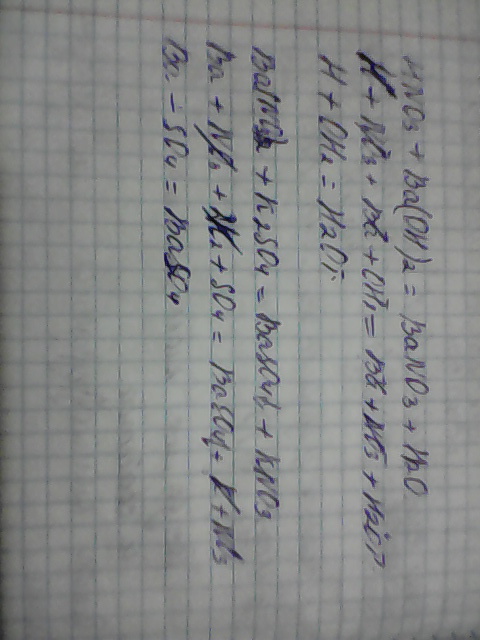 HNO3 + Ba(OH)2 = BaNO3 + H2O
H + NO3 + Ba + OH2 = Ba + NO3 + H2O↑
H + OH2 = H2O↑
Ba(NO3)2 + K2SO4 = BaSO4↓ + KNO3
Ba + NO3 + 2K2 + SO4 = BaSO4↓ + K + NO3
Ba + SO4 = BaSO4